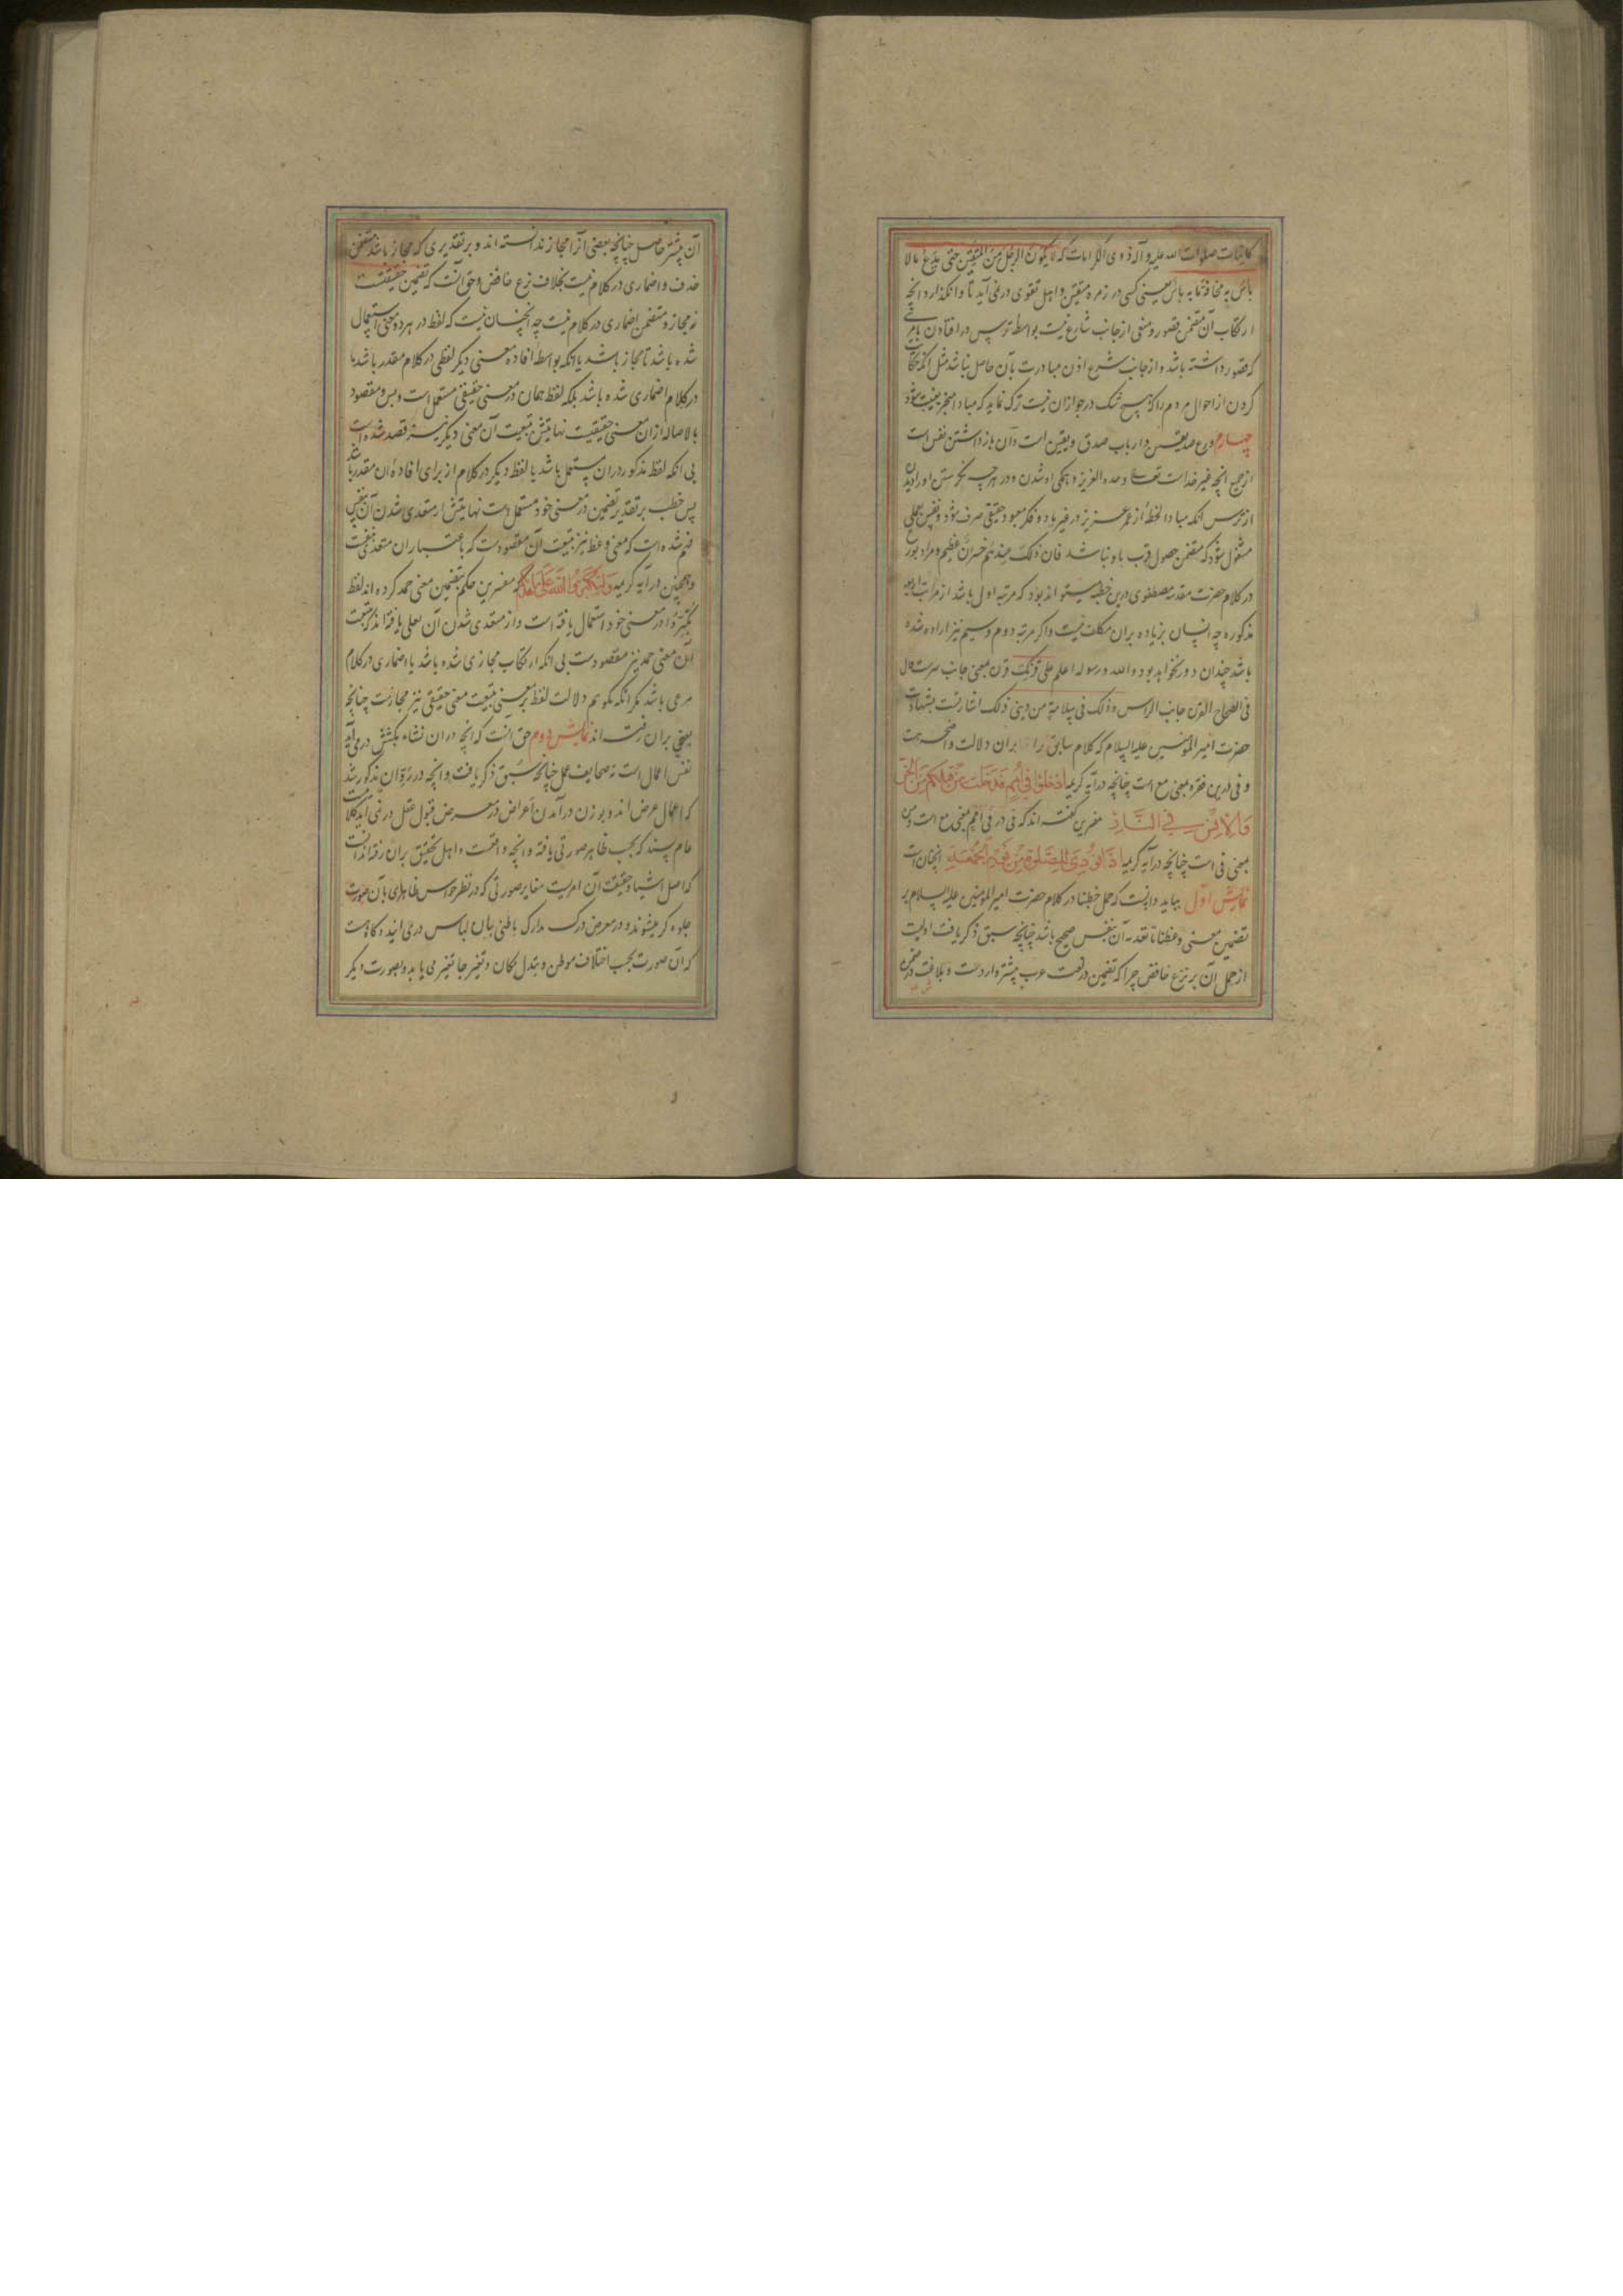 کاینات صلوات الله علیه و آله ذوی الکرامات که لا یکون الرجل من المتقین حتی یدع ما لا
باس به مخافة ما به باس یعنی کسی در زمره متقین و اهل تقوی در نمی آید تا وانکذارد انچه
ارتکاب آن متضمن قصور و منعی از جانب شارع نیست بواسطه ترس در افتادن بامری
که قصور داشته باشد و از جانب شرع اذن مبادرت بآن حاصل نباشد مثل انکه حکایت
کردن از احوال مردم را که هیچ شک در جواز ان نیست ترک نماید که مبادا منجر بغیبت شود
چهارم ورع صدیقین و ارباب صدق و یقین است و آن بازداشتن نفس است
از جمیع انچه غیر خداست تعالی وحده العزیز و همکی او شدن و در هر چه نکرستن او را دیدن
از ترس انکه مبادا لحظهٔ از عمر عزیز در غیر یاد و فکر معبود حقیقی صرف شود و نفس بعملی
مشغول شود که متضمن حصول قرب باو نباشد فان ذلک عندهم خسران عظیم و مراد بورع
در کلام حضرت مقدسه مصطفوی درین خطبه میتواند بود که مرتبه اول باشد از مراتب اربعه
مذکوره چه انسان بزیاده بران مکلف نیست و اکر مرتبه دوم و سیم نیز اراده شده
باشد چندان دور نخواهد بود والله و رسوله اعلم علی قرنک قرن بمعنی جانب سرست قال
فی الصحاح القرن جانب الراس و ذلک فی سلامة من دینی ذلک اشارتست بشهادت
حضرت امیر المؤمنین علیه السلام که کلام سابق را بران دلالت واضحه هست
و فی درین فقره بمعنی مع است چنانچه در آیه کریمه ادخلوا فی امم قد خلت من قبلکم من الجن
والانس فی النار مفسرین کفته اند که فی در فی امم بمعنی مع است و من
بمعنی فی است چنانچه در آیه کریمه اذا نودی للصلوة من یوم الجمعة انچنان است
نمایش اول بباید دانست که حمل خطبنا در کلام حضرت امیر المؤمنین علیه السلام بر
تضمین معنی وعظنا تا تعدیه آن بنفس صحیح باشد چنانچه سبق ذکر یافت اولیست
از حمل آن بر نزع خافض چرا که تضمین در لغت عرب بیشتر واردست و بلاغت در ضمن
آن بیشتر حاصل چنانچه بعضی آنرا مجاز ندانسته اند و بر تقدیری که مجاز باشد متضمن
حذف و اضماری در کلام نیست بخلاف نزع خافض و حق آنست که تضمین حقیقتست
نه مجاز و متضمن اضماری در کلام نیست چه انچنان نیست که لفظ در هر دو معنی استعمال
شده باشد تا مجاز باشد یا انکه بواسطه افاده معنی دیکر لفظی در کلام مقدر باشد تا
در کلام اضماری شده باشد بلکه لفظ همان در معنی حقیقی مستعمل است و بس و مقصود
بالاصاله ازان معنی حقیقیست نهایتش بتبعیت آن معنی دیکر نیز قصد شده است
بی انکه لفظ مذکور دران مستعمل باشد یا لفظ دیکر در کلام از برای افاده ان مقدر باشد
پس خطب بر تقدیر تضمین در معنی خود مستعمل است نهایتش از متعدی شدن آن بنفس
فهم شده است که معنی وعظ نیز بتبعیت آن مقصودست که باعتبار ان متعدی بنفسست
و همچنین در آیه کریمه ولتکبروا الله علی ما هدیکم که مفسرین حکم بتضمین معنی حمد کرده اند لفظ
تکبروا در معنی خود استعمال یافته است و از متعدی شدن آن بعلی یافته اند که بتبعیت
آن معنی حمد نیز مقصودست بی انکه ارتکاب مجازی شده باشد یا اضماری در کلام
مرعی باشد مکر انکه بکوییم دلالت لفظ بر معنی بتبعیت معنی حقیقی نیز مجازست چنانچه
بعضی بران رفته اند نمایش دوم حق آنست که انچه دران نشاه بکشش در می آید
نفس اعمال است نه صحایف عمل چنانچه سبق ذکر یافت و انچه در رد ان مذکور شد
که اعمال عرض اند و بوزن درآمدن اعراض در معرض قبول عقل در نمی آید کلامیست
عام پسند که بحسب ظاهر صورتی یافته و انچه واقعست و اهل تحقیق بران رفته اند آنست
که اصل اشیا و حقیقت آن امریست مغایر صورتی که در نظر حواس ظاهری بآن صورت
جلوه کر میشوند و در معرض درک مدارک باطنی بان لباس در می آیند و کاه هست
که آن صورت بحسب اختلاف موطن و تبدل مکان و تغیر جا تغیر می یابد و بصورت دیکر